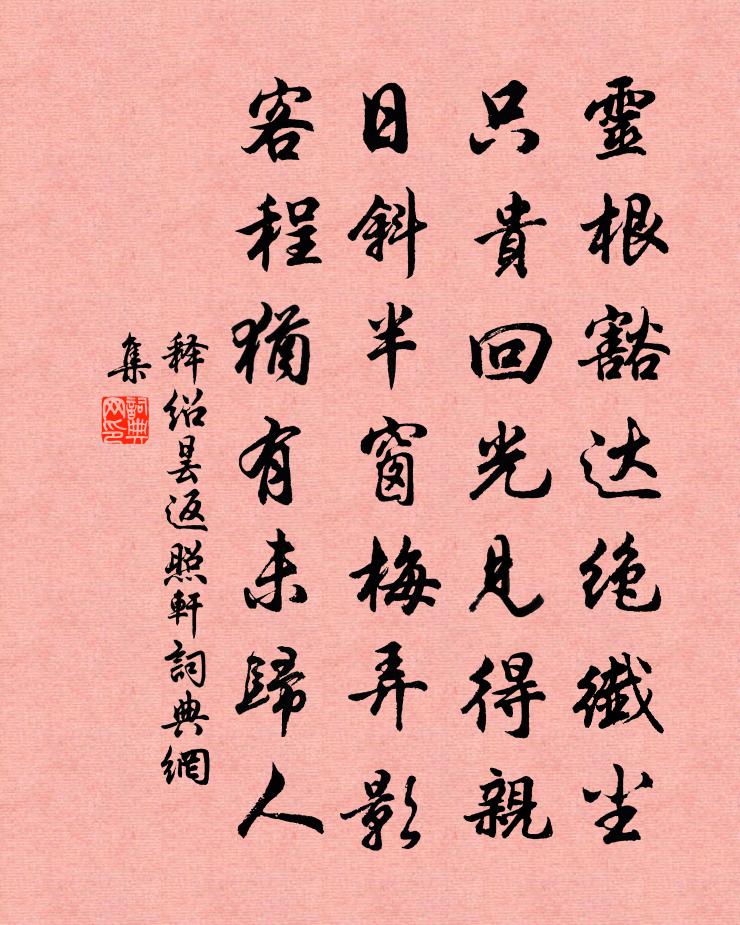 靈根豁达绝纖尘
只貴回光見得親
日斜半窗梅弄影
客程猶有未歸人
释绍昙返照軒詞典網
集
詞典
网印